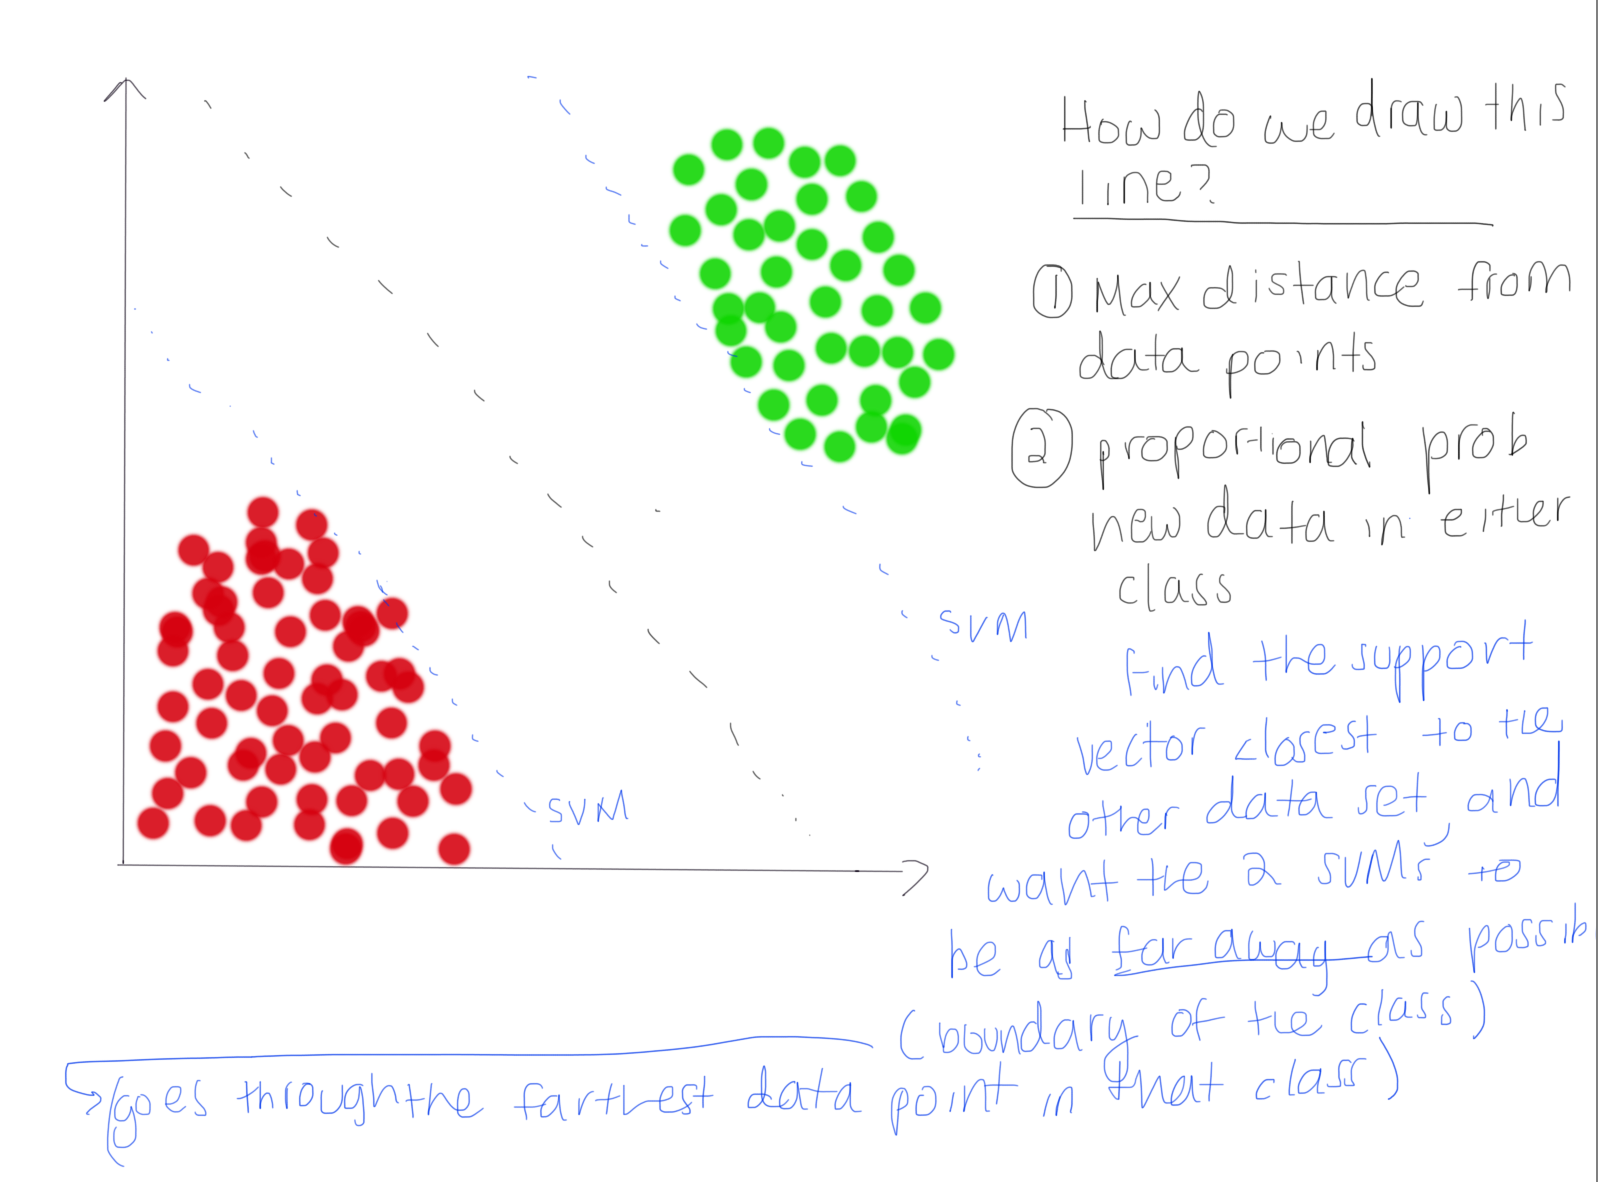 How do we draw this
line?
① Max distance from
data points
② proportional prob
new data in either
class
SVM
find the support
vector closest to the
other data set, and
SVM
want the 2 SVMs to
be as far away as possib
(boundary of the class)
(goes through the farthest data point in that class)